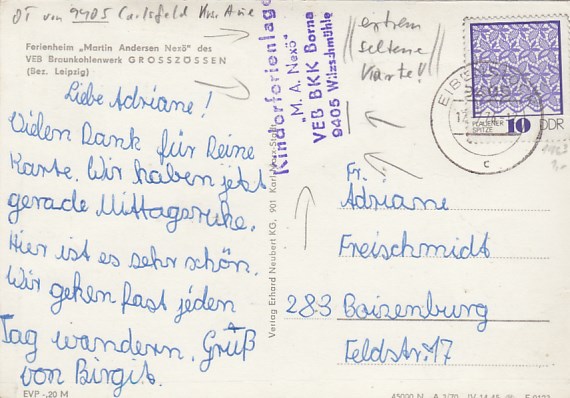 OT von 9405 Carlsfeld Krs. Aue
Ferienheim „Martin Andersen Nexö" des
VEB Braunkohlenwerk GROSSZÖSSEN
(Bez. Leipzig)
Liebe Adriane!
Vielen Dank für Deine
Karte. Wir haben jetzt
gerade Mittagsruhe.
Hier ist es sehr schön.
Wir gehen fast jeden
Tag wandern. Gruß
von Birgit.
EVP -.20 M
Verlag Erhard Neubert KG, 901 Karl-Marx-Stadt
Kinderferienlage
"M. A. Nexö"
VEB BKK Borna
9405 Wilzschmühle
extrem
seltene
Karte!
EIBE
PLAUENER
SPITZE
10
DDR
c
Fr.
Adriane
Freischmidt
283 Boizenburg
Feldstr. 17
45000 N A 3/70 IV-14-45